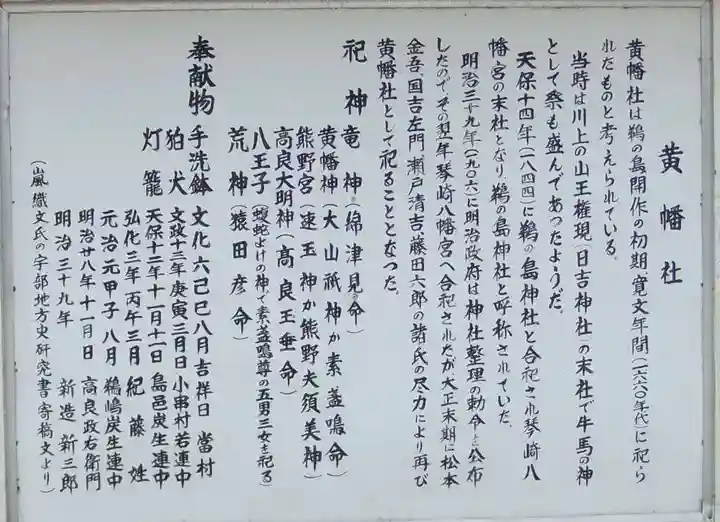 黄幡社
黄幡社は鵜の島開作の初期、寛文年間(一六六〇年代)に祀ら
れたものと考えられている。
当時は川上の山王権現(日吉神社)の末社で牛馬の神
として祭も盛んであったようだ。
天保十四年(一八四四)に鵜の島神社と合祀され琴崎八
幡宮の末社となり、鵜の島神社と呼称されていた。
明治三十九年(一九〇六)に明治政府は神社整理の勅令を公布
したので、その翌年琴崎八幡宮へ合祀されたが大正末期に松本
金吾、国吉左門、瀬戸清吉、藤田六郎の諸氏の尽力により再び
黄幡社として祀ることとなった。
祀神 竜神(綿津見の命)
黄幡神(大山祇神か素盞鳴命)
熊野宮(速玉神か熊野夫須美神)
高良大明神(高良玉垂命)
八王子(蝮蛇よけの神で素盞鳴尊の五男三女を祀る)
荒神(猿田彦命)
奉献物 手洗鉢 文化六己巳八月吉祥日 當村
狛犬 文政十三年庚寅三月日 小串村若連中
灯籠 天保十二年十一月十一日 島邑炭生連中
弘化三年丙午三月 紀藤姓
元治元甲子八月 鵜嶋炭生連中
明治廿八年十一月日 高良政右衛門
明治三十九年 新造新三郎
(山嵐織文氏の宇部地方史研究書寄稿文より)